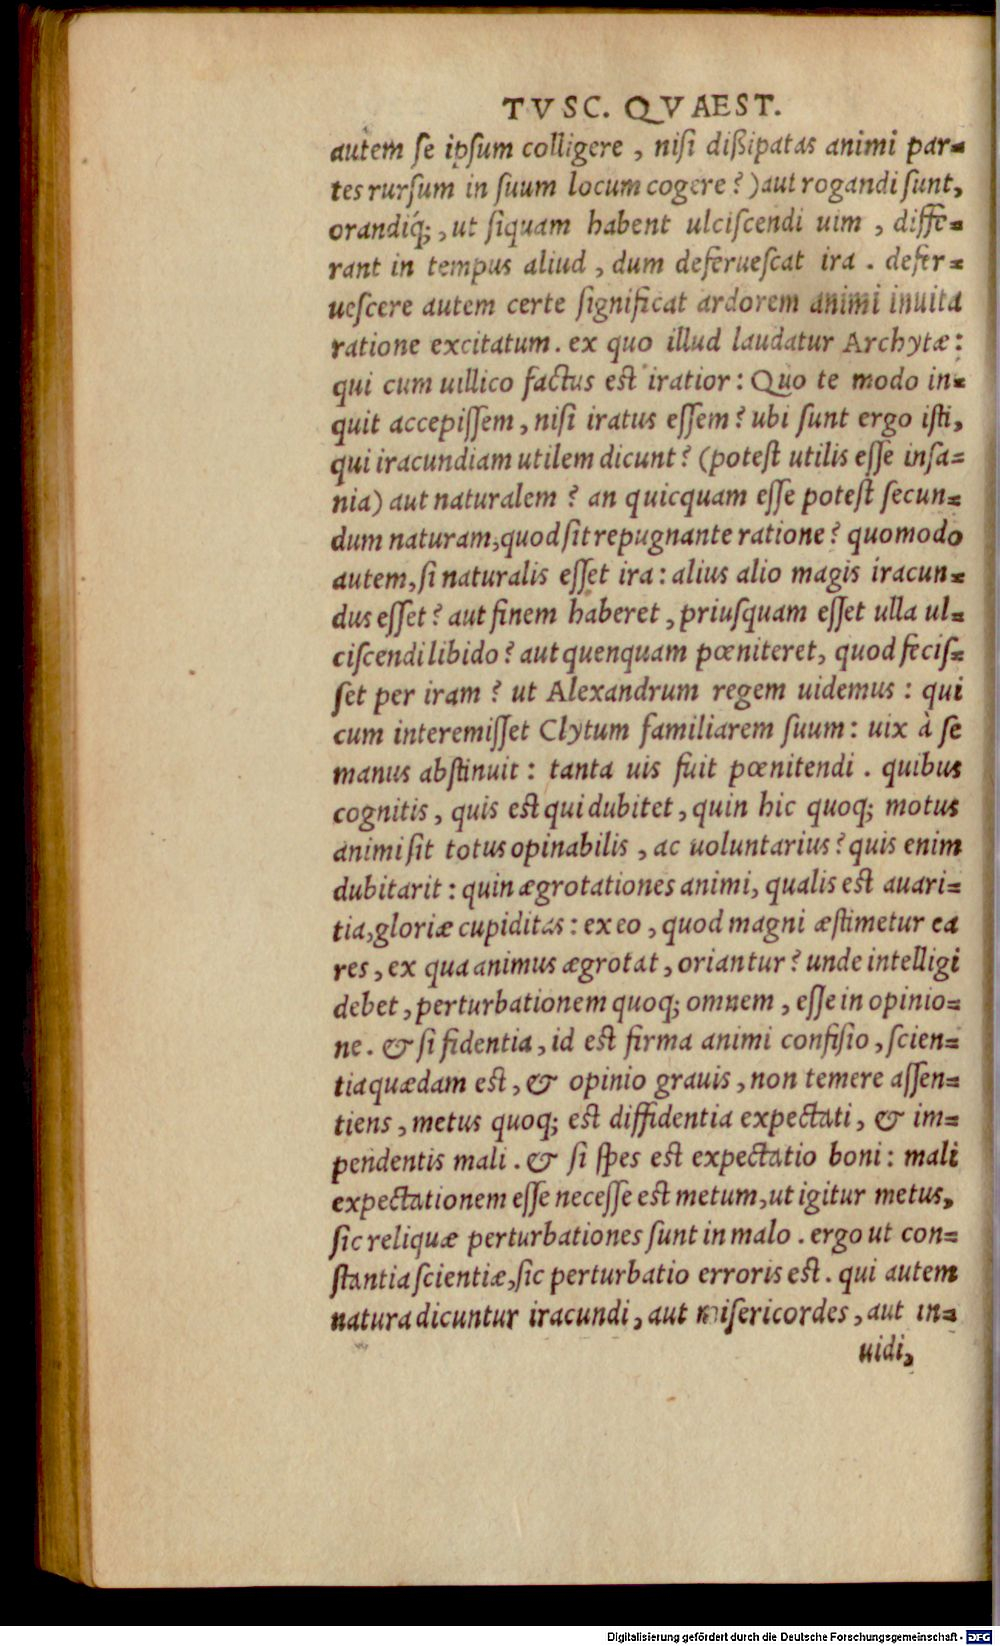 TVSC. QVAEST.
autem ſe ipſum colligere , niſi dißipatas animi par=
tes rurſum in ſuum locum cogere ? ) aut rogandi ſunt,
orandiq́; , ut ſiquam habent ulciſcendi uim , diffe=
rant in tempus aliud , dum deferueſcat ira . defer=
ueſcere autem certe ſignificat ardorem animi inuita
ratione excitatum . ex quo illud laudatur Archytæ :
qui cum uillico factus est iratior : Quo te modo in=
quit accepiſſem , niſi iratus eſſem ? ubi ſunt ergo iſti,
qui iracundiam utilem dicunt ? (potest utilis eſſe inſa=
nia) aut naturalem ? an quicquam eſſe potest ſecun=
dum naturam, quod ſit repugnante ratione ? quomodo
autem, ſi naturalis eſſet ira : alius alio magis iracun=
dus eſſet ? aut finem haberet , priuſquam eſſet ulla ul=
ciſcendi libido ? aut quenquam pœniteret, quod feciſ=
ſet per iram ? ut Alexandrum regem uidemus : qui
cum interemiſſet Clytum familiarem ſuum : uix à ſe
manus abſtinuit : tanta uis fuit pœnitendi . quibus
cognitis , quis est qui dubitet , quin hic quoq; motus
animi ſit totus opinabilis , ac uoluntarius ? quis enim
dubitarit : quin ægrotationes animi, qualis est auari=
tia, gloriæ cupiditas : ex eo , quod magni æſtimetur ea
res , ex qua animus ægrotat , oriantur ? unde intelligi
debet , perturbationem quoq; omnem , eſſe in opinio=
ne . & ſi fidentia , id est firma animi confiſio , ſcien=
tia quædam est , & opinio grauis , non temere aſſen=
tiens , metus quoq; est diffidentia expectati , & im=
pendentis mali . & ſi ſpes est expectatio boni : mali
expectationem eſſe neceſſe est metum, ut igitur metus,
ſic reliquæ perturbationes ſunt in malo . ergo ut con=
ſtantia ſcientiæ, ſic perturbatio erroris est . qui autem
natura dicuntur iracundi , aut miſericordes , aut in=
uidi,
Digitalisierung gefördert durch die Deutsche Forschungsgemeinschaft - DFG